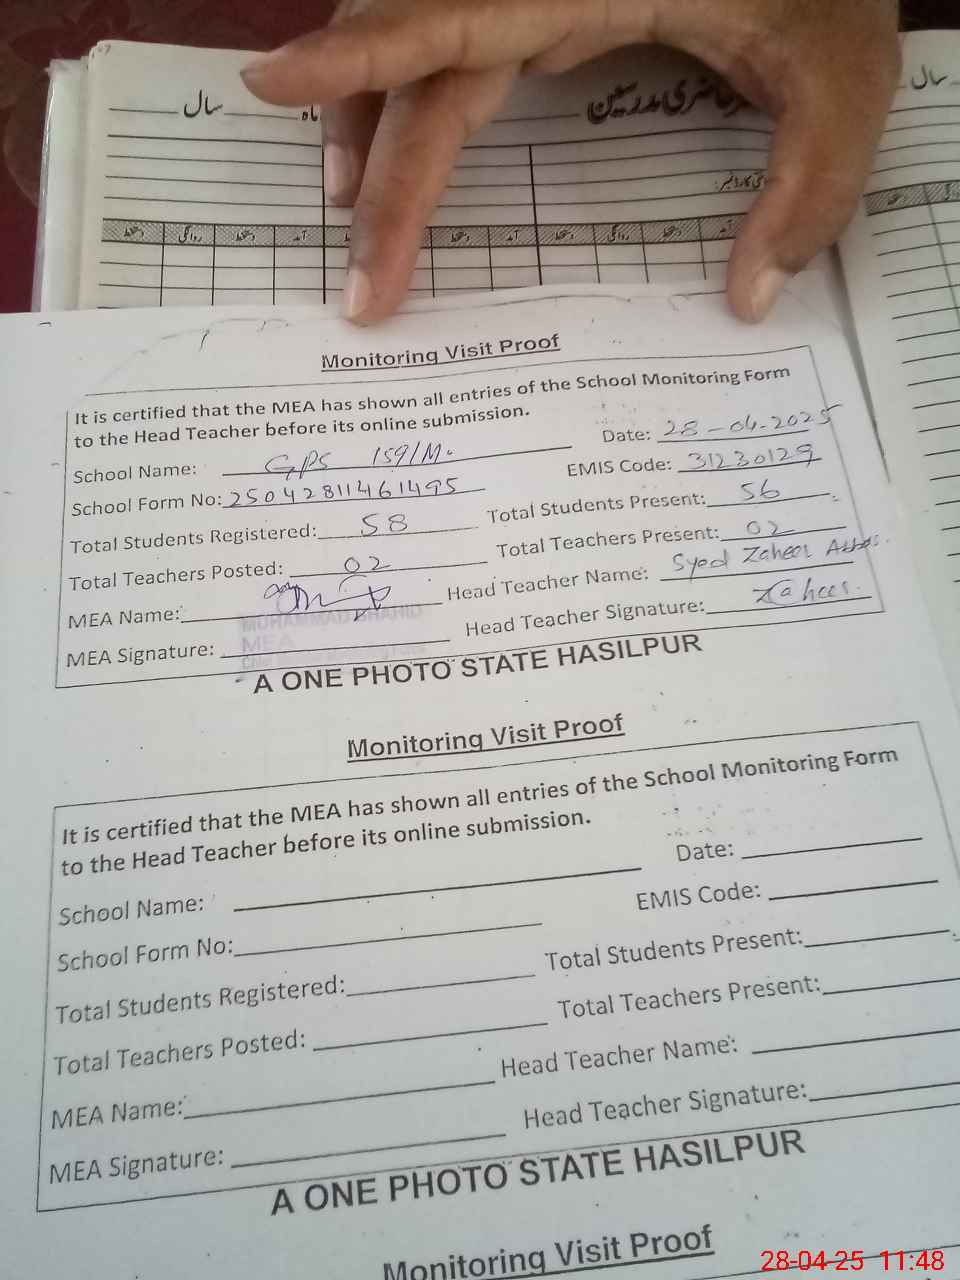 سال ماہ حاضری مدرسین سال
دستخط روانگی دستخط آمد دستخط آمد دستخط روانگی دستخط آمد
Monitoring Visit Proof
It is certified that the MEA has shown all entries of the School Monitoring Form
to the Head Teacher before its online submission.
Date: 28-04-2025
School Name: GPS 159/M.
EMIS Code: 31230129
School Form No: 25042811461495
Total Students Registered: 58
Total Students Present: 56
Total Teachers Posted: 02
Total Teachers Present: 02
MEA Name:
Head Teacher Name: Syed Zaheer Abbas.
MUHAMMAD SHAHID
MEA
MEA Signature:
Head Teacher Signature: Zaheer.
A ONE PHOTO STATE HASILPUR
Monitoring Visit Proof
It is certified that the MEA has shown all entries of the School Monitoring Form
to the Head Teacher before its online submission.
Date:
School Name:
EMIS Code:
School Form No:
Total Students Present:
Total Students Registered:
Total Teachers Present:
Total Teachers Posted:
Head Teacher Name:
MEA Name:
Head Teacher Signature:
MEA Signature:
A ONE PHOTO STATE HASILPUR
Monitoring Visit Proof
28-04-25 11:48